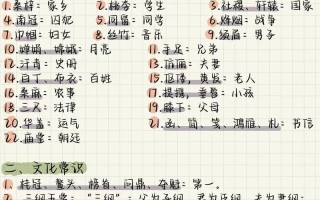 1.桑梓：家乡 2.桃李：学生 3.社稷、轩辕：国家
4.南冠：囚犯 5.同窗：同学 6.烽烟：战争
7.巾帼：妇女 8.丝竹：音乐 9.须眉：男子
10.婵娟、嫦娥：月亮 11.手足：兄弟
12.汗青：史册 13.伉俪：夫妻
14.白丁、布衣：百姓 15.伛偻，黄发：老人
16.桑麻：农事 17.提携，垂髫：小孩
18.三尺：法律 19.膝下：父母
20.华盖：运气 21.函、简、笺、鸿雁、札：书信
22.庙堂：朝廷
二、文化常识
1.桂冠、鳌头、榜首、问鼎、夺魁：第一。
2.三纲五常："三纲"：父为子纲、君为臣纲、夫为妻纲；